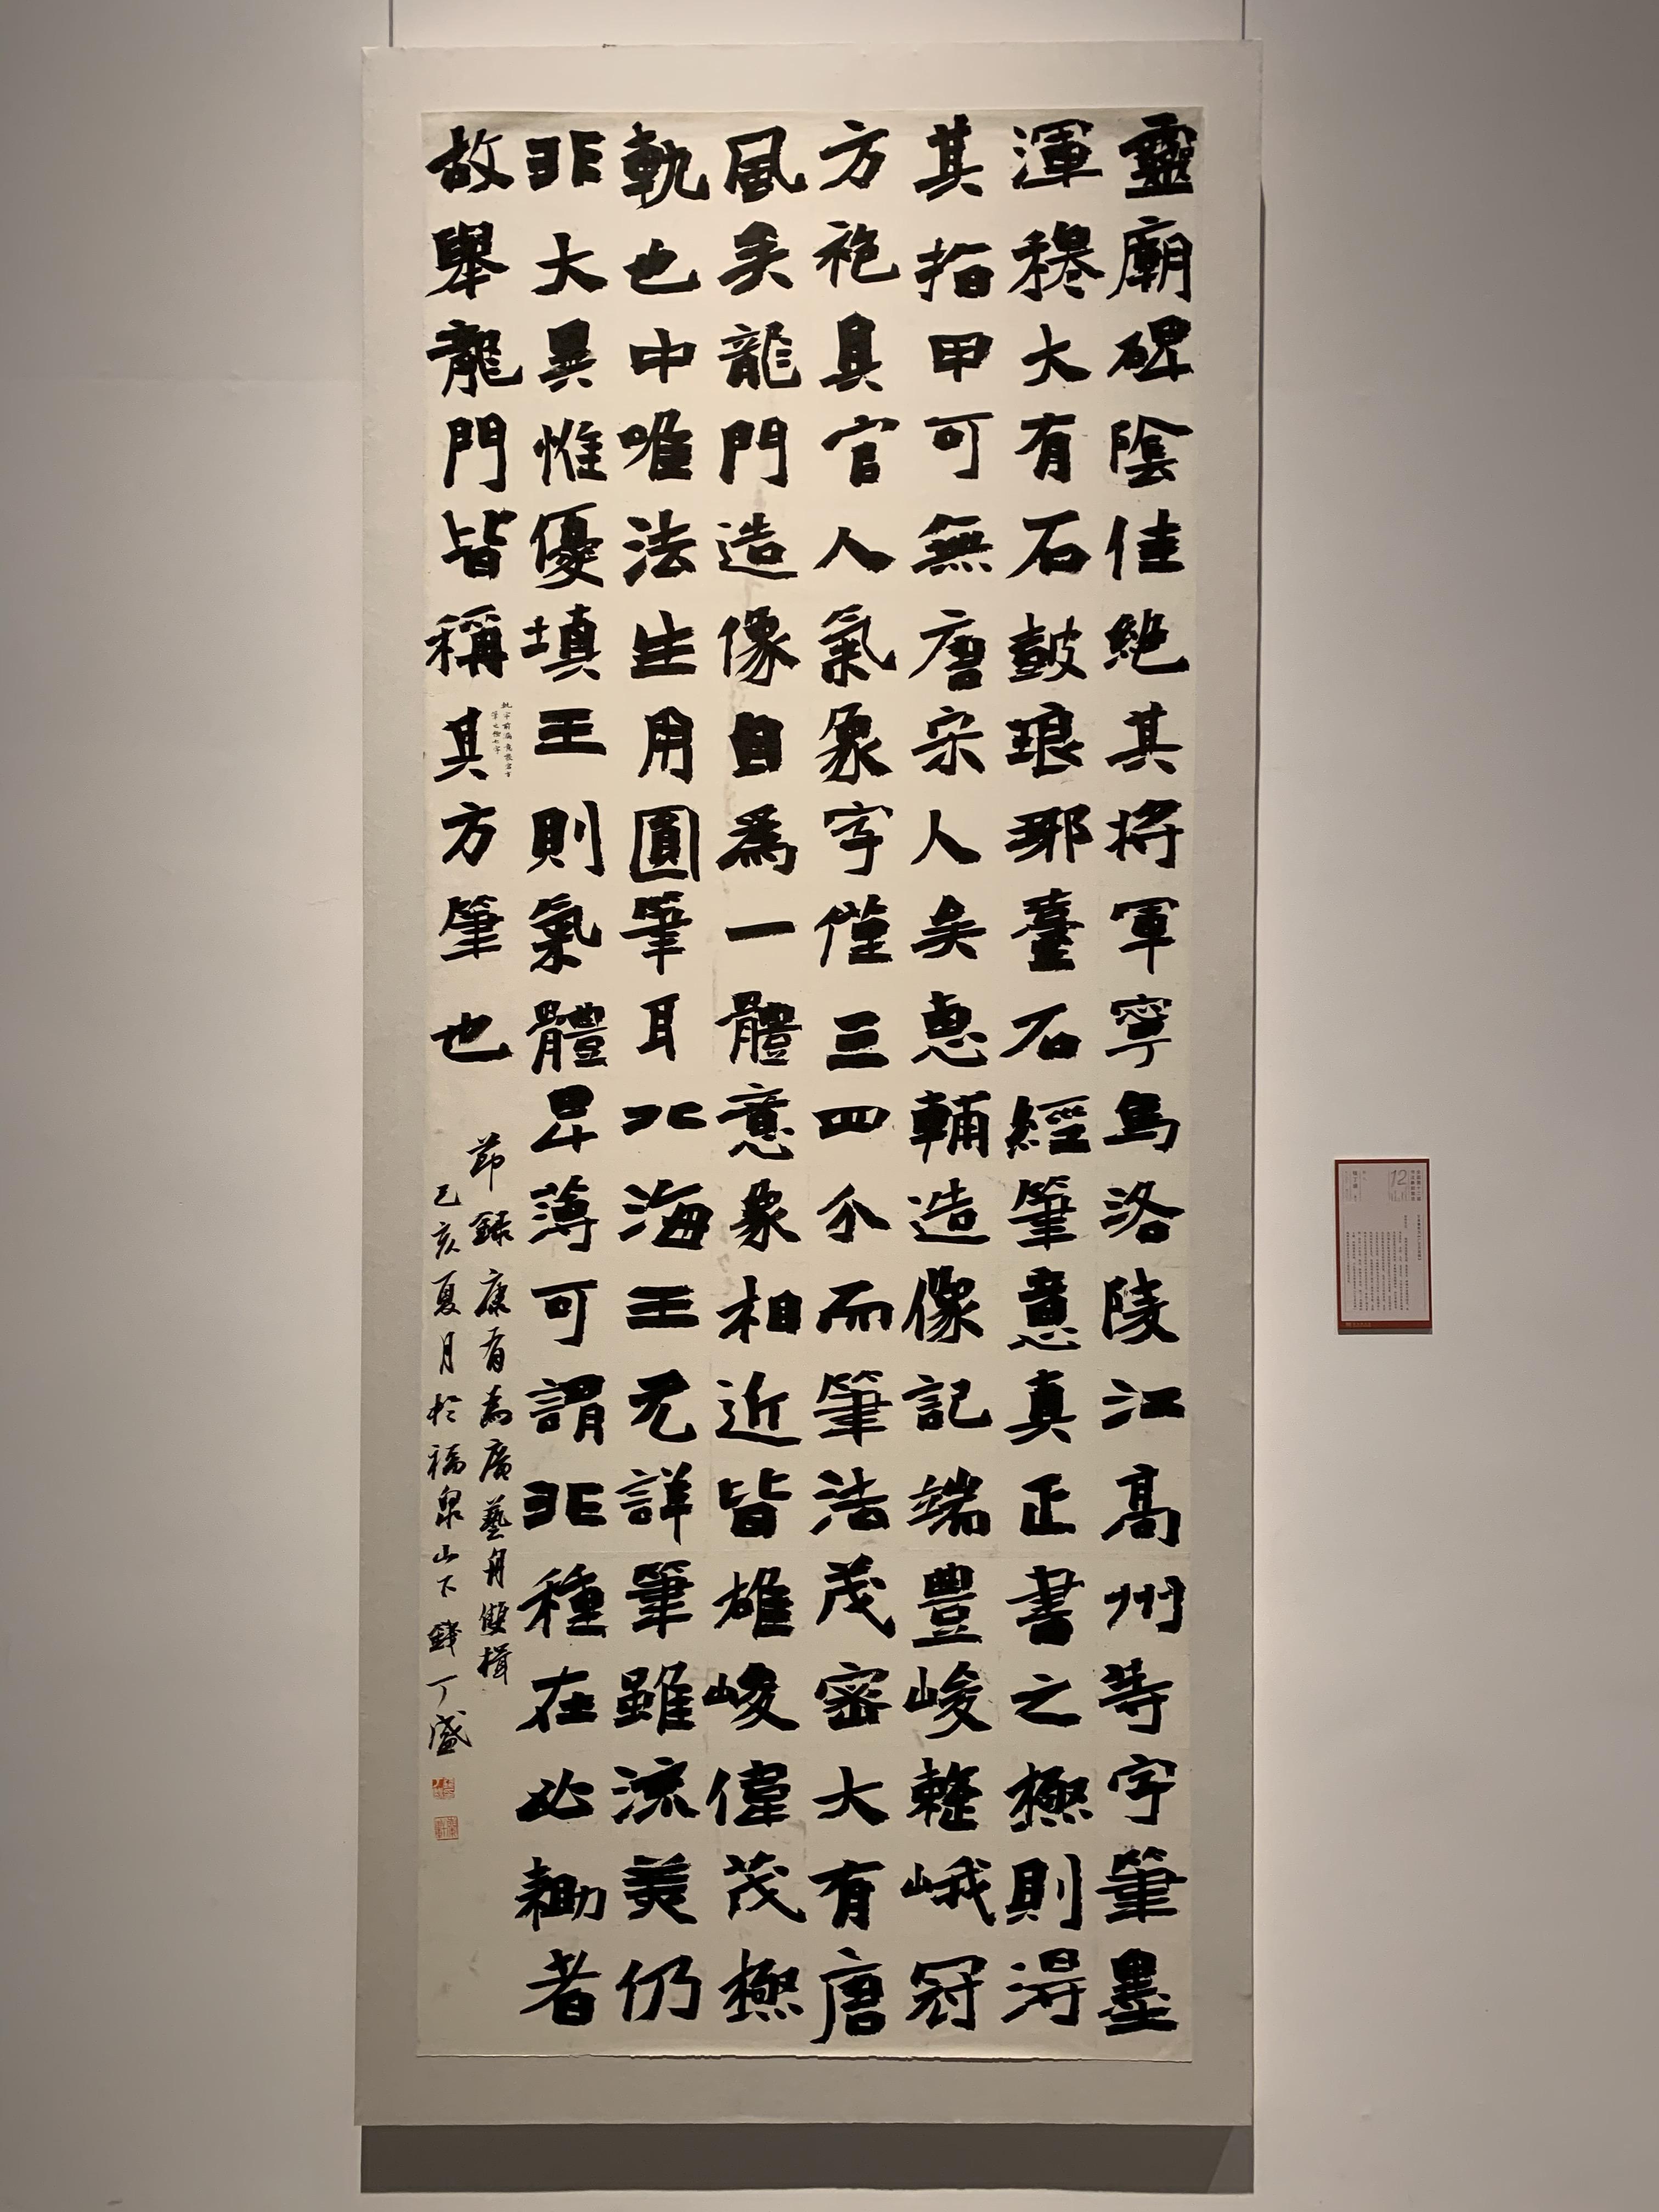 靈廟碑陰佳絕其將軍寧烏洛陵江高州等字筆墨
渾穆大有石鼓琅琊臺石經筆意真正書之極則得
其指甲可無唐宋人矣惠輔造像記端豐峻整峨冠
方袍具官人氣象字僅三四分而筆法茂密大有唐
風矣龍門造像自爲一體意象相近皆雄峻偉茂極
軌也中唯法生用圓筆耳北海王元詳筆雖流美仍
非大異惟優填王則氣體卑薄可謂非種在必耡者
故舉龍門皆稱其方筆也
軌字前漏意發宕方
筆之極七字
節録康有為廣藝舟雙楫
己亥夏月於福泉山下錢丁盛
12